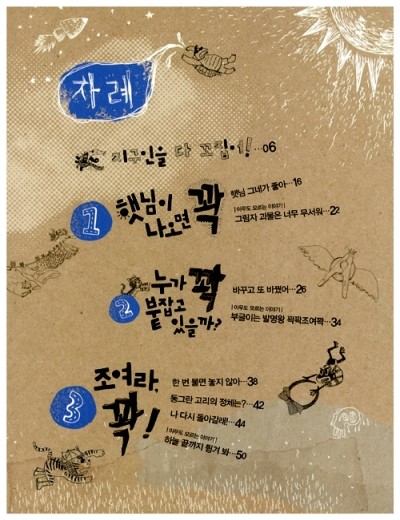 차례
지구인을 다 꼬집어!…06
1
햇님이
나오면 꽉
햇님 그네가 좋아…16
| 아무도 모르는 이야기 |
그림자 괴물은 너무 무서워…22
2
누가 꽉
붙잡고
있을까?
바꾸고 또 바꿨어…26
| 아무도 모르는 이야기 |
부글이는 발명왕 꽉꽉조여꽉…34
3
조여라,
꽉!
한 번 물면 놓지 않아…38
동그란 고리의 정체는?…42
나 다시 돌아갈래!…44
| 아무도 모르는 이야기 |
하늘 끝까지 튕겨 봐…50